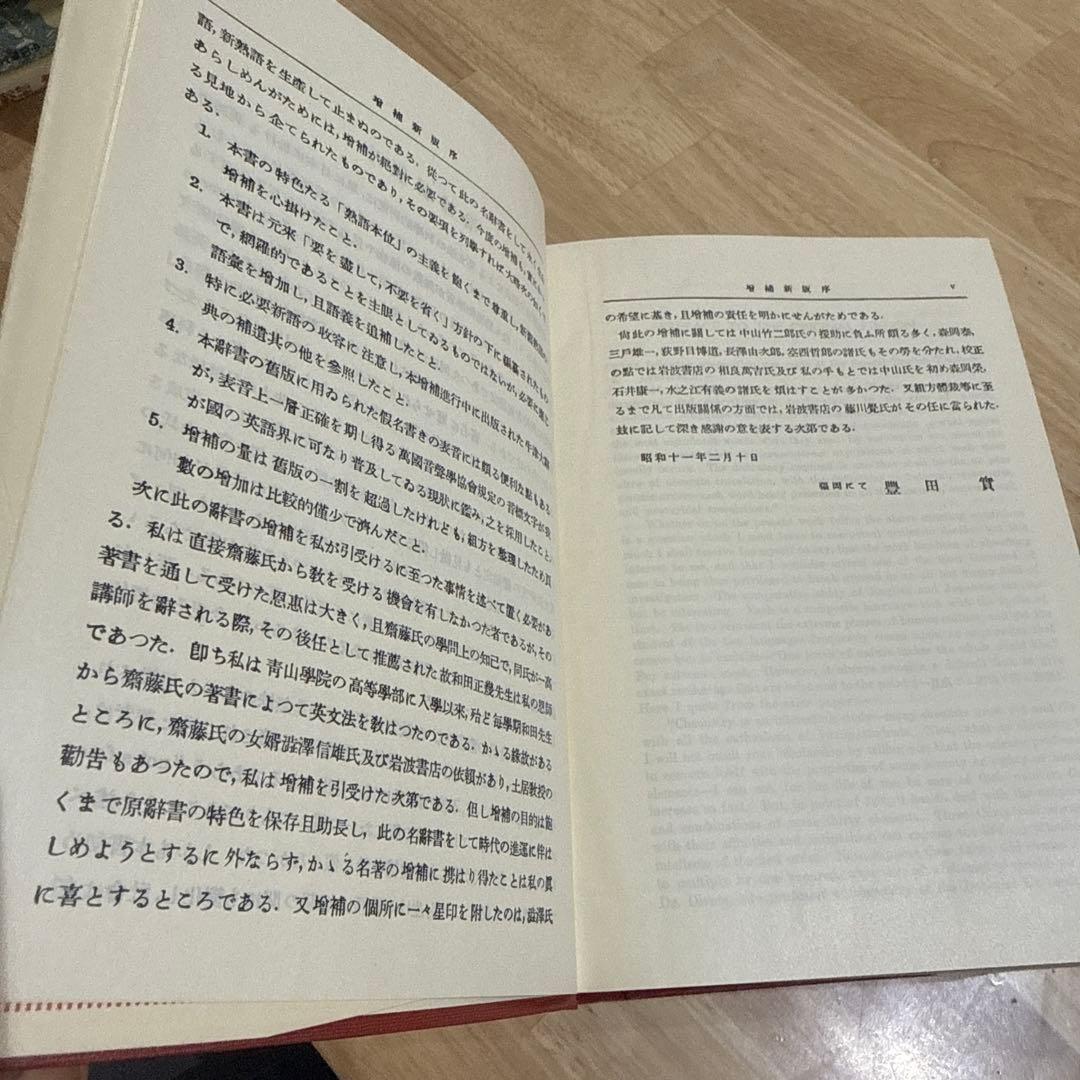 增補新版序
語, 新熟語を生產して止まぬのである. 從つて此の名辭書をして
あらしめんがためには, 增補が絕對に必要である. 今度の增補も,
る見地から企てられたものであり, その要項を列擧すれば大略次の
ある.
1. 本書の特色たる「熟語本位」の主義を飽くまで尊重し, 新熟語の
增補を心掛けたこと.
2. 本書は元來「要を盡して, 不要を省く」方針の下に編纂されたもの
で, 網羅的であることを主眼としてゐるものではないが, 必要に應じ
語彙を增加し, 且語義を追補したこと.
3. 特に必要新語の收容に注意し, 本增補進行中に出版された牛津大辭
典の補遺其の他を參照したこと.
4. 本辭書の舊版に用ゐられた假名書きの表音には頗る便利な點もある
が, 表音上一層正確を期し得る萬國音聲學協會規定の音標文字が我
が國の英語界に可なり普及してゐる現狀に鑑み, 之を採用したこと.
5. 增補の量は舊版の一割を超過したけれども, 組方を整理したため頁
數の增加は比較的僅少で濟んだこと.
次に此の辭書の增補を私が引受けるに至つた事情を述べて置く必要があ
る. 私は直接齋藤氏から敎を受ける機會を有しなかつた者であるが, その
著書を通して受けた恩惠は大きく, 且齋藤氏の學問上の知己で, 同氏が一高
講師を辭される際, その後任として推薦された故和田正幾先生は私の恩師
であつた. 卽ち私は靑山學院の高等學部に入學以來, 殆ど每學期和田先生
から齋藤氏の著書によつて英文法を敎はつたのである. かゝる緣故がある
ところに, 齋藤氏の女婿澁澤信雄氏及び岩波書店の依賴があり, 土居敎授の
勸吿もあつたので, 私は增補を引受けた次第である. 但し增補の目的は飽
くまで原辭書の特色を保存且助長し, 此の名辭書をして時代の進運に伴は
しめようとするに外ならず, かゝる名著の增補に携はり得たことは私の眞
に喜とするところである. 又增補の個所に一々星印を附したのは, 澁澤氏
增補新版序 v
の希望に基き, 且增補の責任を明かにせんがためである.
尙此の增補に關しては中山竹二郎氏の援助に負ふ所頗る多く, 森岡泰,
三戶雄一, 荻野目博道, 長澤由次郎, 空西哲郎の諸氏もその勞を分たれ, 校正
の點では岩波書店の相良萬吉氏及び私の手もとでは中山氏を初め森岡榮,
石井康一, 水之江有義の諸氏を煩はすことが多かつた. 又組方體裁等に至
るまで凡て出版關係の方面では, 岩波書店の藤川覺氏がその任に當られた.
玆に記して深き感謝の意を表する次第である.
昭和十一年二月十日
福岡にて 豐田實